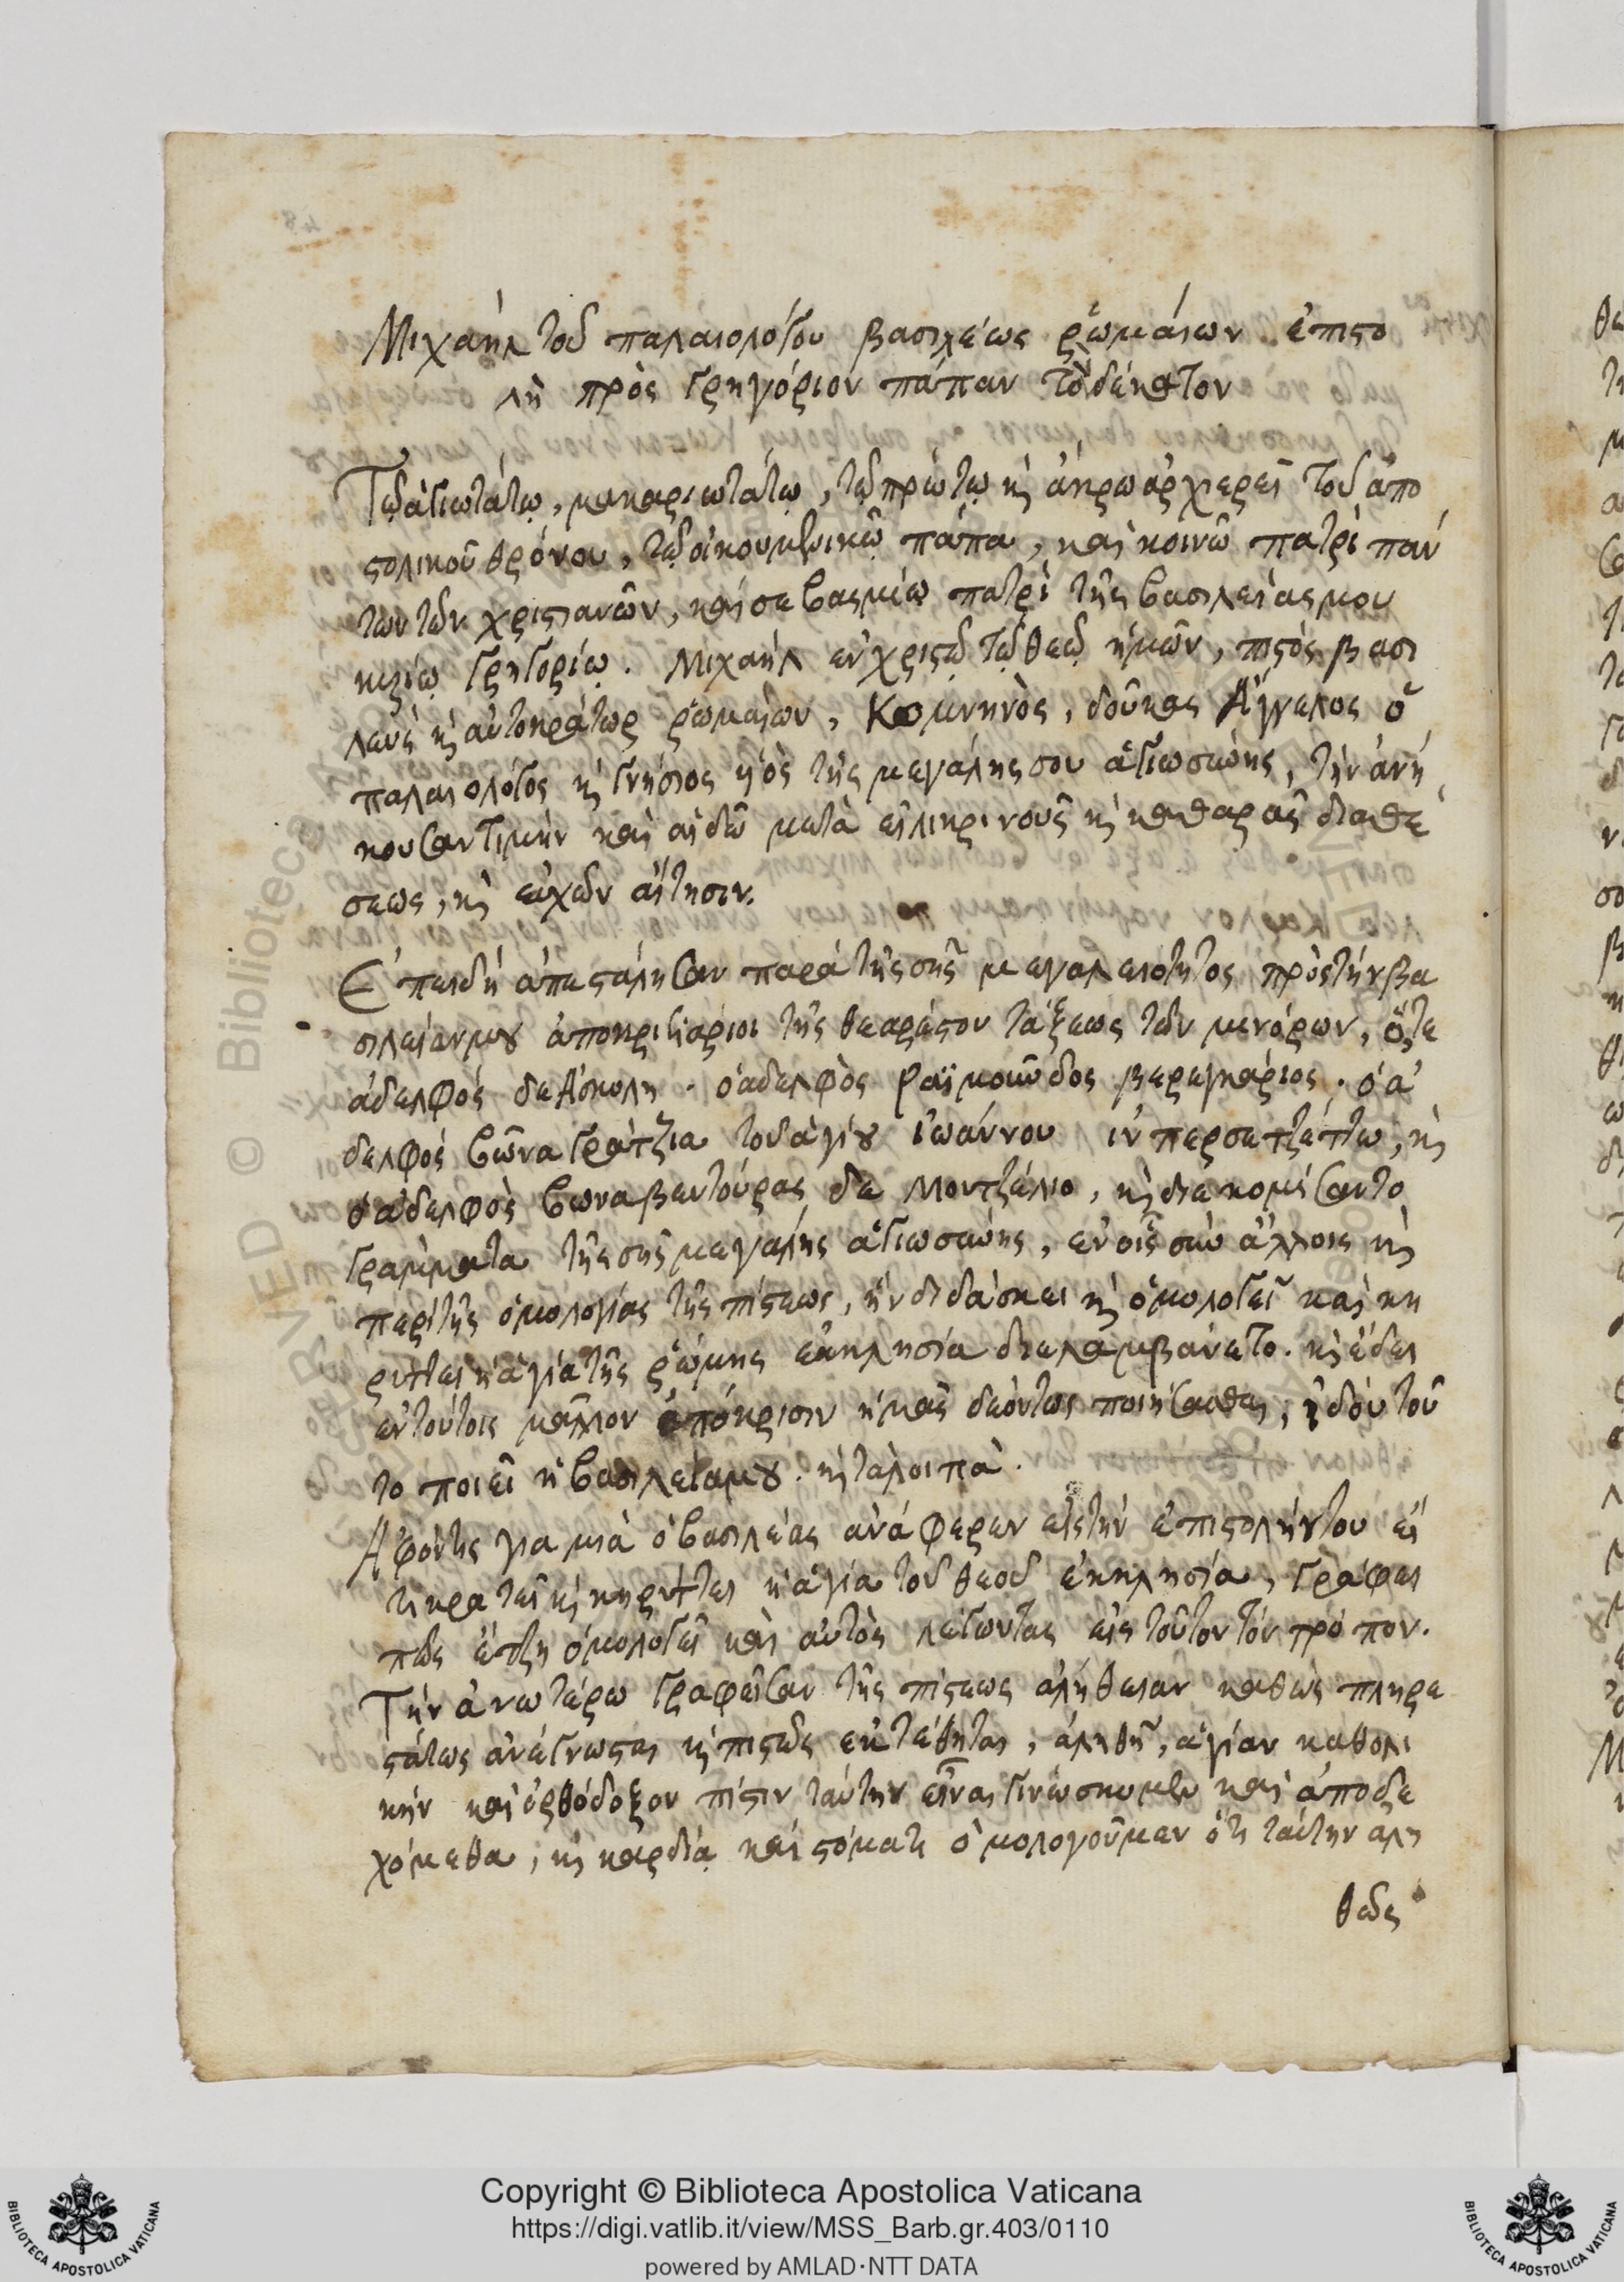 Μιχαὴλ τοῦ παλαιολόγου βασιλέως ῥωμαίων ἐπιστο
λὴ πρὸς γρηγόριον πάπαν τὸν δέκατον
Τῷ ἁγιωτάτῳ, μακαριωτάτῳ, τῷ πρώτῳ κὶ ἄκρῳ ἀρχιερεῖ τοῦ ἀπο
στολικοῦ θρόνου, τῷ οἰκουμενικῷ πάπα, καὶ κοινῷ πατρὶ πάν
των τῶν χριστιανῶν, καὶ σεβασμίῳ πατρὶ τῆς βασιλείας μου
κυρίῳ γρηγορίῳ. Μιχαὴλ ἐν χριστῷ τῷ θεῷ ἡμῶν, πιστὸς βασι
λεὺς κὶ αὐτοκράτωρ ῥωμαίων, Κομνηνὸς, δοῦκας Ἄγγελος ὁ
παλαιολόγος κὶ γνήσιος ὑὸς τῆς μεγάλης σου ἁγιωσύνης, τὴν ἀνή
κουσαν τιμὴν καὶ αἰδῶ μετὰ εἰλικρινοῦς κὶ καθαρᾶς διαθέ
σεως, κὶ εὐχῶν αἴτησιν.
Ἐπειδὴ ἀπεστάλησαν παρὰ τῆς σῆς μεγαλειότητος πρὸς τὴν βα
σιλείαν μου ἀποκρισιάριοι τῆς θεαρέστου τάξεως τῶν μενόρων, ὅ,τε
ἀδελφὸς δε Ἀσκολη. ὁ ἀδελφὸς ραϊμοῦνδος βερεγκάριος. ὁ ἀ
δελφὸς βῶνα γράτζια τοῦ ἁγίου ἰωάννου ἰν περσετζέττω, κὶ
ὁ ἀδελφὸς βωναβεντούρας δε Μοντζέλιο, κὶ διεκομίσαντο
γράμματα τῆς σῆς μεγάλης ἁγιωσύνης, ἐν οἷς σὺν ἄλλοις κὶ
περὶ τῆς ὁμολογίας τῆς πίστεως, ἣν διδάσκει κὶ ὁμολογεῖ καὶ κη
ρύττει ἡ ἁγία τῆς ῥώμης ἐκκλησία διελαμβάνετο. κὶ ἔδει
ἐν τούτοις μᾶλλον ἀπόκρισιν ἡμᾶς δεόντως ποιήσασθαι, ἰδοὺ τοῦ
το ποιεῖ ἡ βασιλεία μου. κὶ τὰ λοιπὰ.
Ἀφόντης για μιὰ ὁ βασιλέας ἀνάφερεν εἰς τὴν ἐπιστολήν του εἴ
τι κρατεῖ κὶ κηρύττει ἡ ἁγία τοῦ θεοῦ ἐκκλησία, γράφει
πῶς ἔτζη ὁμολογεῖ καὶ αὐτὸς λέγωντας εἰς τοῦτον τὸν τρόπον.
Τὴν ἀνωτέρω γραφεῖσαν τῆς πίστεως ἀλήθειαν καθὼς πληρε
στάτως ἀνέγνωσται κὶ πιστῶς ἐκτέθηται, ἀληθῆ, ἁγίαν καθολι
κὴν καὶ ὀρθόδοξον πίστιν ταύτην εἶναι γινώσκομεν καὶ ἀποδε
χόμεθα, κὶ καρδίᾳ καὶ στόματι ὁμολογοῦμεν ὅτι ταύτην αλη
θῶς
Copyright © Biblioteca Apostolica Vaticana
https://digi.vatlib.it/view/MSS_Barb.gr.403/0110
powered by AMLAD·NTT DATA